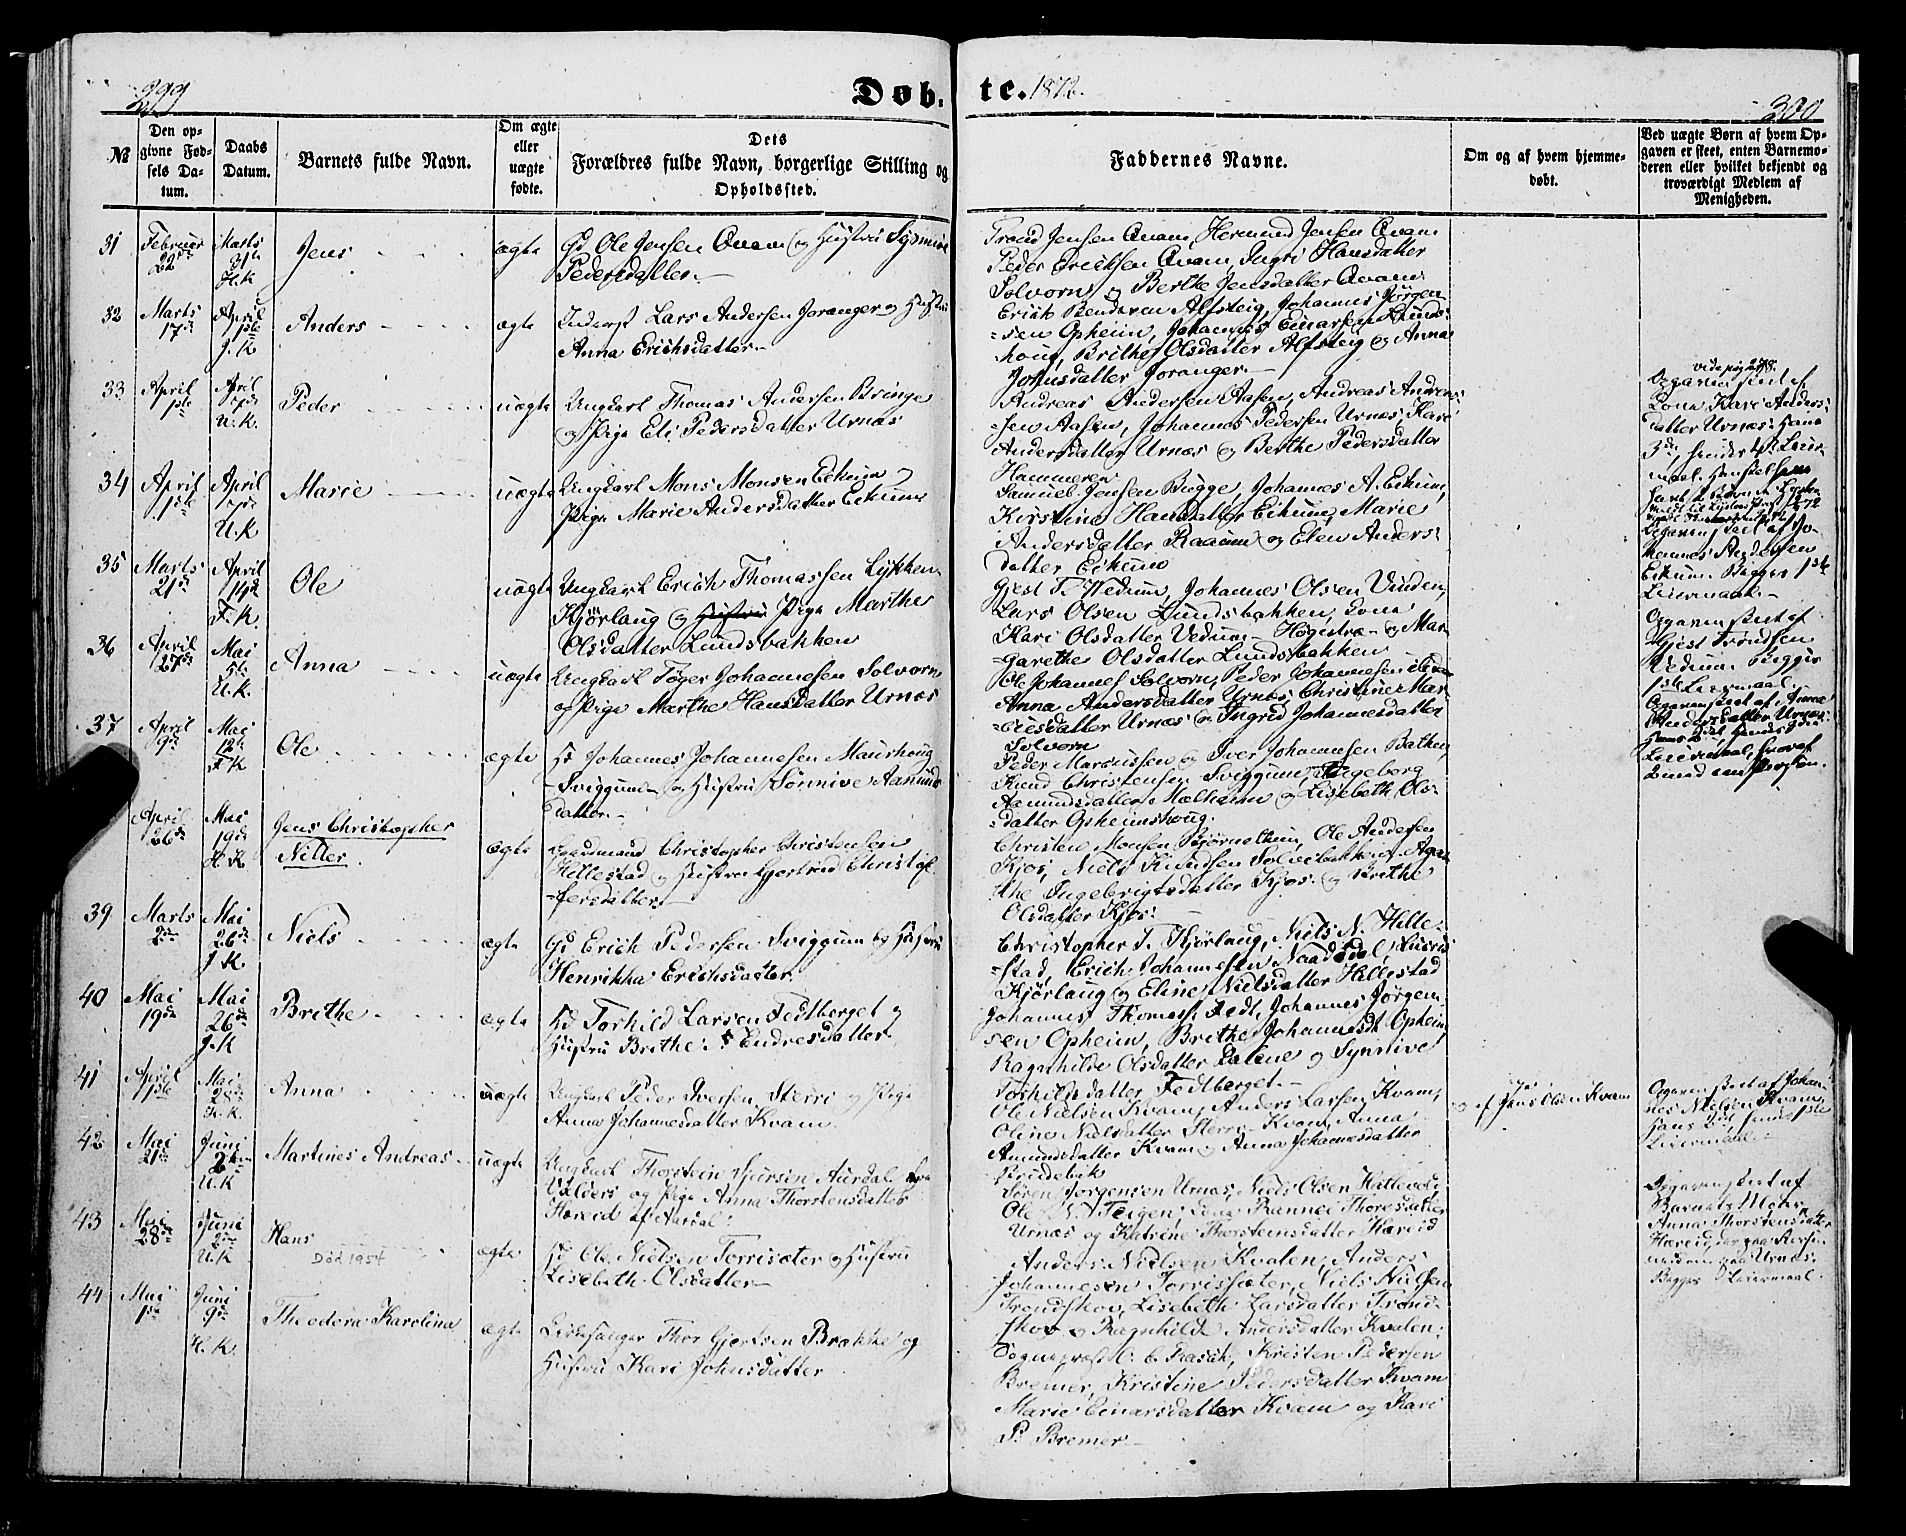 299
Døb-
te. 1872.
300
№
Den op-
givne Fød-
sels Da-
tum.
Daabs
Datum.
Barnets fulde Navn.
Om ægte
eller
uægte
fødte.
Dets
Forældres fulde Navn, borgerlige Stilling og
Opholdssted.
Faddernes Navne.
Om og af hvem hjemme-
døbt.
Ved uægte Børn af hvem Op-
gaven er skeet, enten Barnemo-
deren eller hvilket bekjendt og
troværdigt Medlem af
Menigheden.
31
Februar
22de
Marts
31te
H.K
Jens
ægte
Gd Ole Jensen Qvam og Hustru Synnive
Pedersdatter.
Trond Jensen Qvam, Hermund Jensen Qvam
Peder Ericksen Qvam, Ingri Hansdatter
Solvorn og Berthe Jensdatter Qvam
32
Marts
17de
April
1ste
J.K
Anders
ægte
Inderst Lars Andersen Joranger og Hustru
Anna Erichsdatter
Erick Bendixen Alfsteig, Johannes Jörgen-
sen Opheim, Johannes Einarsen
houg, Brithe Olsdatter Alfsteig og Anna
Johnsdatter Joranger.
33
April
1ste
April
7de
U.K.
Peder
uægte
Ungkarl Thomas Andersen Bringe
og Pige Eli Pedersdatter Urnæs
Andreas Andersen Aasen, Andreas Andrea-
sen Aasen, Johannes Pedersen Urnæs, Kari
Andersdatter Urnæs og Berthe Pedersdatter
Hammeren
vide pag
Opgaven skeet af
Kona Kari Anders-
datter Urnæs. Hans
3de, hendes 1ste Leier-
maal.
34
April
1ste
April
7de
U.K
Marie
uægte
Ungkarl Mons Monsen Eikum og
Pige Marie Andersdatter Eikum
Samuel Jensen Bugge, Johannes A. Eikum,
Kirstine Hansdatter Eikum, Marie
Andersdatter Raaum og Elen Anders-
datter Eikum
Opgaven skeet af Jo-
hannes Andersen
Eikum. Begges 1ste
Leiermaal.
35
Marts
21de
April
14de
F.K.
Ole
uægte
Ungkarl Erich Thomassen Lykken
Kjörlaug og Hustru Pige Marthe
Olsdatter Lundsbakken
Gjest T. Vedum, Johannes Olsen Vinden,
Lars Olsen Lundsbakken, Kona
Kari Olsdatter Vedum Högestræ og Mar-
garethe Olsdatter Lundsbakken
Opgaven skeet af
Gjest Trondsen
Vedum. Begges
1ste Leiermaal.
36
April
27de
Mai
5te
U.K.
Anna
uægte
Ungkarl Töger Johannesen Solvorn
og Pige Marthe Hansdatter Urnæs
Ole Johannes Solvorn, Peder Johannesen
Anna Andersdatter Urnæs, Christine Mar-
cusdatter Urnæs og Ingrid Johannesdatter
Solvorn
Opgaven skeet af Anna
Andersdatter Urnæs.
Leiermaal,
37
April
9de
Mai
12te
F.K
Ole
ægte
Gd Johannes Johannesen Maurhoug
Sviggum og Hustru Sönnive Aamunds
datter.
Peder Marcussen og Iver Johannesen Bathen,
Knud Christensen Sviggum, Ingeborg
Aamundsdatter Mælheim og Lisebeth Ols-
datter Opheimshoug.
April
26de
Mai
19de
H.K
Jens Christopher
Nitter.
ægte
Gaardmand Christopher Christensen
Hillestad og Hustru Gjertrud Christof-
fersdatter
Christen Monsen Bjørnethun, Ole Andersen
Kjos, Niels Knudsen Solvibakken, Aga-
the Ingebrigtsdatter Kjos og Brithe
Olsdatter Kjos.
39
Marts
2de
Mai
26de
J.K.
Niels
ægte
Gd Erich Pedersen Sviggum og Hustru
Henrikka Erichsdatter.
Christopher T. Kjörlaug, Niels N. Hille-
stad, Erich Johannesen Naadedal,
Kjörlaug og Eline Nielsdatter Hillestad
40
Mai
19de
Mai
26de
J.K
Brithe
ægte
Gd Torkild Larsen Fedtberget og
Hustru Brithe Endresdatter
Johannes Thomas. Fedt, Johannes Jørgen-
sen Opheim, Brithe Johannesdt Opheim
Ragnhilde Olsdatter Talene og Synnive
Torkildsdatter Fedtberget.
41
April
1ste
Mai
28de
H.K.
Anna
uægte
Ungkarl Peder Iversen Sterri og Pige
Anna Johannesdatter Kvam.
Ole Nielsen Kvam, Anders Larsen Kvam,
Oline Nielsdatter Sterri Kvam, Anna
Amundsdatter Kvam og Anna Johannesdatter
Prudebik
Ja
af Jens Olsen Kvam
Opgaven skeet af Johan-
nes Nielsen Kvam
Hans 2det, hendes 1ste
Leiermaal.
42
Mai
21de
Juni
2den
U.K
Martines Andreas
uægte
Ungkarl Thorstein Sjursen Aurdal fra
Valders og Pige Anna Thorstensdatter
Hæreid af Aardal.
Søren Jørgensen Urnæs, Niels Olsen Hettevold,
Ole N. Teigen, Kona Rannei Thoresdatter
Urnæs og Katrine Thorsteinsdatter Hæreid
Opgaven skeet af
Barnets Moder
Anna Thorstensdatter
Hæreid,
Urnæs.
Begges 1 Leiermaal.
43
Mai
28de
Juni
2den
U.K
Hans
Död 1954
ægte
Gd Ole Nielsen Torrisæter og Hustru
Lisebeth Olsdatter
Anders Nielsen Kvalen, Anders
Johannesen Torrisæter, Niels Nielsen
Trondskov, Lisebeth Larsdatter Trond-
skov og Ragnhilde Andersdatter Kvalen.
44
Mai
1ste
Juni
9de
H.K.
Theodora Karolina
ægte
Kirkesanger Thor Gjertsen Brække og
Hustru Kari Johnsdatter
Sognepræst C. Rasch, Kristen Pedersen
Bremer, Kristine Pedersdatter Kvam
Marie Einarsdatter Kvam og Kari
P. Bremer